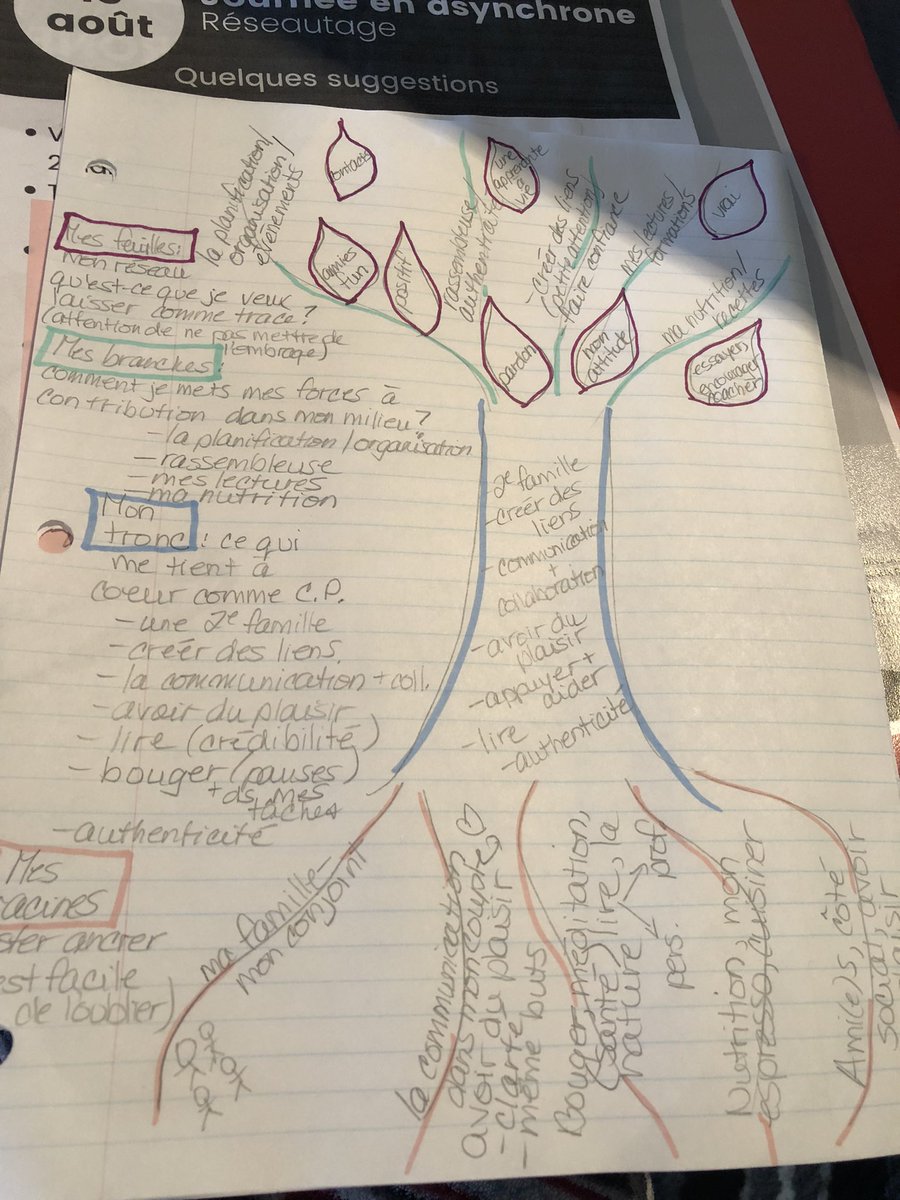 août
Journée en asynchrone
Réseautage
Quelques suggestions
la planification/
organisation/
événements
positif
rassembleuse/
authenticité
une
apprenante
à
vie
- créer des liens
(petite attention)
- faire confiance
mes lectures/
formations
vrai
ma nutrition/
recettes
pardon
mon
attitude
essayer,
encourager
coacher
Mes feuilles:
Mon réseau
qu'est-ce que je veux
laisser comme trace?
(attention de ne pas mettre de
l'ombrage)
Mes branches:
comment je mets mes forces à
contribution dans mon milieu?
- la planification/organisation
- rassembleuse
- mes lectures
- ma nutrition
Mon
tronc: ce qui
me tient à
coeur comme C.P.
- une 2e famille
- créer des liens
- la communication + coll.
- avoir du plaisir
- lire (crédibilité)
- bouger (pauses)
+ ds mes
taches
- authenticité
- 2e famille
- créer des
liens
- communication
+
collaboration
- avoir du
plaisir
- appuyer +
aider
- lire
- authenticité
Mes
racines
ster ancrer
est facile
de l'oublier)
ma famille
mon conjoint
la communication
dans mon couple
avoir du plaisir
- clarté
- même buts
Bouger, méditation,
(santé) lire, la
nature
prof.
pers.
Nutrition, mon
espresso, cuisiner
Ami(e)s, côté
social, avoir
plaisir